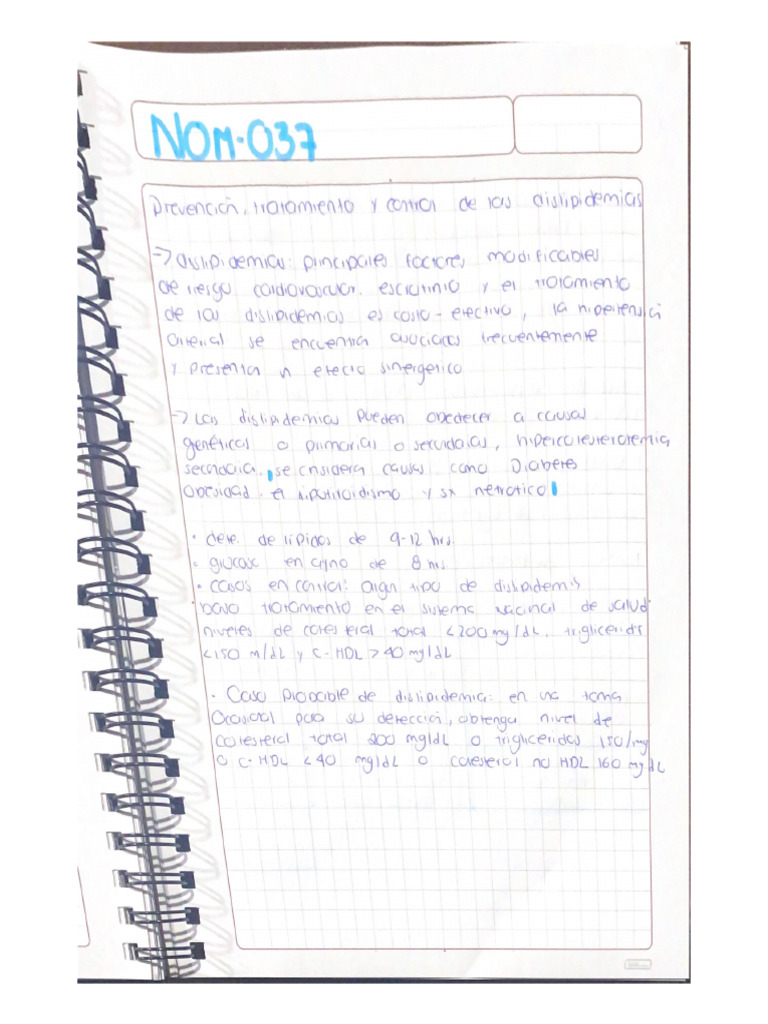 NOM-037
Prevención, tratamiento y control de las dislipidemias
→ dislipidemias: principales factores modificables
de riesgo cardiovascular. escrutinio y el tratamiento
de las dislipidemias es costo-efectivo, la hipertensió
arterial se encuentra asociadas frecuentemente
y presenta un efecto sinergetico
→ Las dislipidemias pueden obedecer a causas
genéticas o primarias o secundarias, hipercolesterolemia
secundaria, se considera causas como Diabetes
obesidad. el hipotiroidismo y sx nefrotico
• dete. de lipidos de 9-12 hrs.
• glucosa en ayuno de 8 hrs
• casos en control: algún tipo de dislipidemis
bajo tratamiento en el sistema nacional de salud
niveles de colesterol total <200 mg/dL, trigliceridis
<150 m/dL y C-HDL >40 mg/dL
• Caso probable de dislipidemia: en una toma
ocasional para su detección, obtenga nivel de
colesterol total 200 mg/dL o trigliceridos 150/mg
o c-HDL <40 mg/dL o colesterol no HDL 160 mg/dL